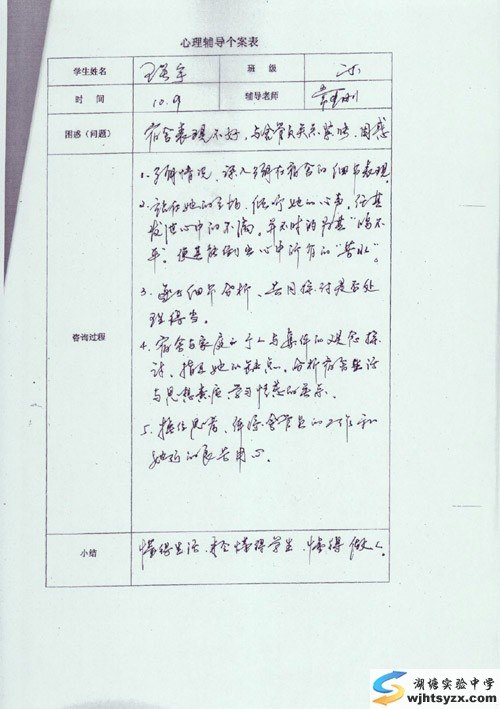 心理辅导个案表
学生姓名 班级
时间 10.9 辅导老师
困惑(问题) 宿舍表现不好,与舍管员关系紧张,困惑
1. 了解情况,深入了解在宿舍的细节表现
2. 站在她的立场,倾听她的心声,任其
发泄心中的不满,并不时的为其"鸣不
平",使其能倒出心中所有的"苦水"。
3. 逐个细节分析、共同探讨是否处
理得当。
咨询过程
4. 宿舍与家庭、个人与集体的观念探
讨,指出她的缺点,分析宿舍生活
与思想素质、学习情意的显示。
5. 换位思考、体谅舍管员的工作和
她的良苦用心。
小结 懂得生活,才会懂得学生,懂得做人。
湖塘实验中学
wjhtsyzx.com